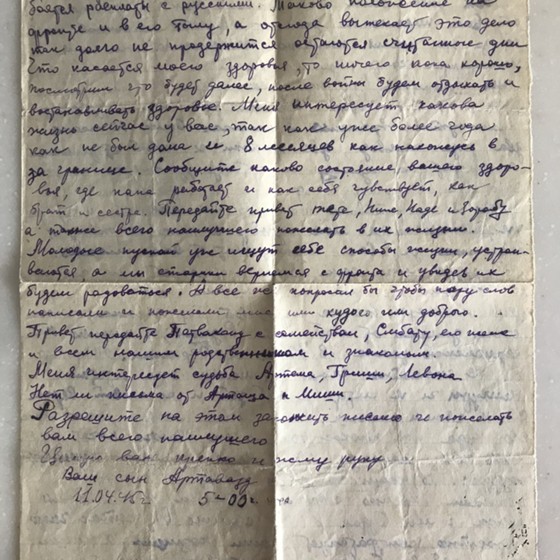 боятся расплаты с русскими. Таково положение на
фронте и в его тылу, а отсюда вытекает это дело
так долго не продержится остаются считанные дни
Что касается моего здоровья, то ничего пока хорошо,
посмотрим что будет далее, после войны будем отдыхать и
востанавливать здоровье. Меня интересует какова
жизнь сейчас у вас, так как уже более года
как не был дома и 8 месяцев как нахожусь в
за границе. Сообщите каково состояние вашего здоро-
вья, где папа работает и как себя чувствует, как
брат и сестра. Передайте привет тете, Нине, Наде и
а также всего наилучшего пожелать в их жизни.
Молодые пускай уже ищут себе способы жизни, устраи-
ваются а мы старики вернемся с фронта и увидев их
будем радоваться. А все же попросил бы чтобы пару слов
написали и пожелали мне или худого или доброго.
Привет передайте с семейством, Симбату, его жене
и всем нашим родственникам и знакомым.
Меня интересует судьба Артема, Гриши, Левона
Нет ли письма от и Миши.
Разрешите на этом закончить письмо и пожелать
вам всего наилучшего
Целую вас крепко и жму руку
Ваш сын Артавазд
11.04.45г 5-00г.